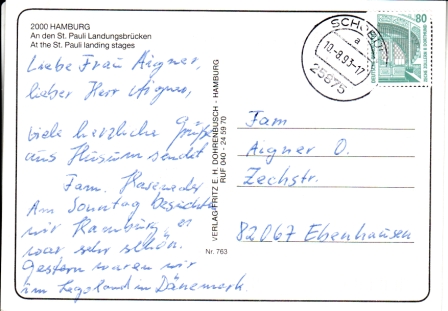 2000 HAMBURG
An den St. Pauli Landungsbrücken
At the St. Pauli landing stages
Liebe Frau Aigner,
lieber Herr Aigner,
viele herzliche Grüße
aus Husum sendet
Fam.
Am Sonntag besichte
wir Hamburg, es
war sehr schön.
Gestern waren wir
im Legoland in Dänemark.
VERLAG FRITZ E. H. DOHRENBUSCH - HAMBURG
RUF 040 - 24 59 70
Nr. 763
10.-8.93-17
a
25875
80
Fam
Aigner O.
Zechstr.
82067 Ebenhausen